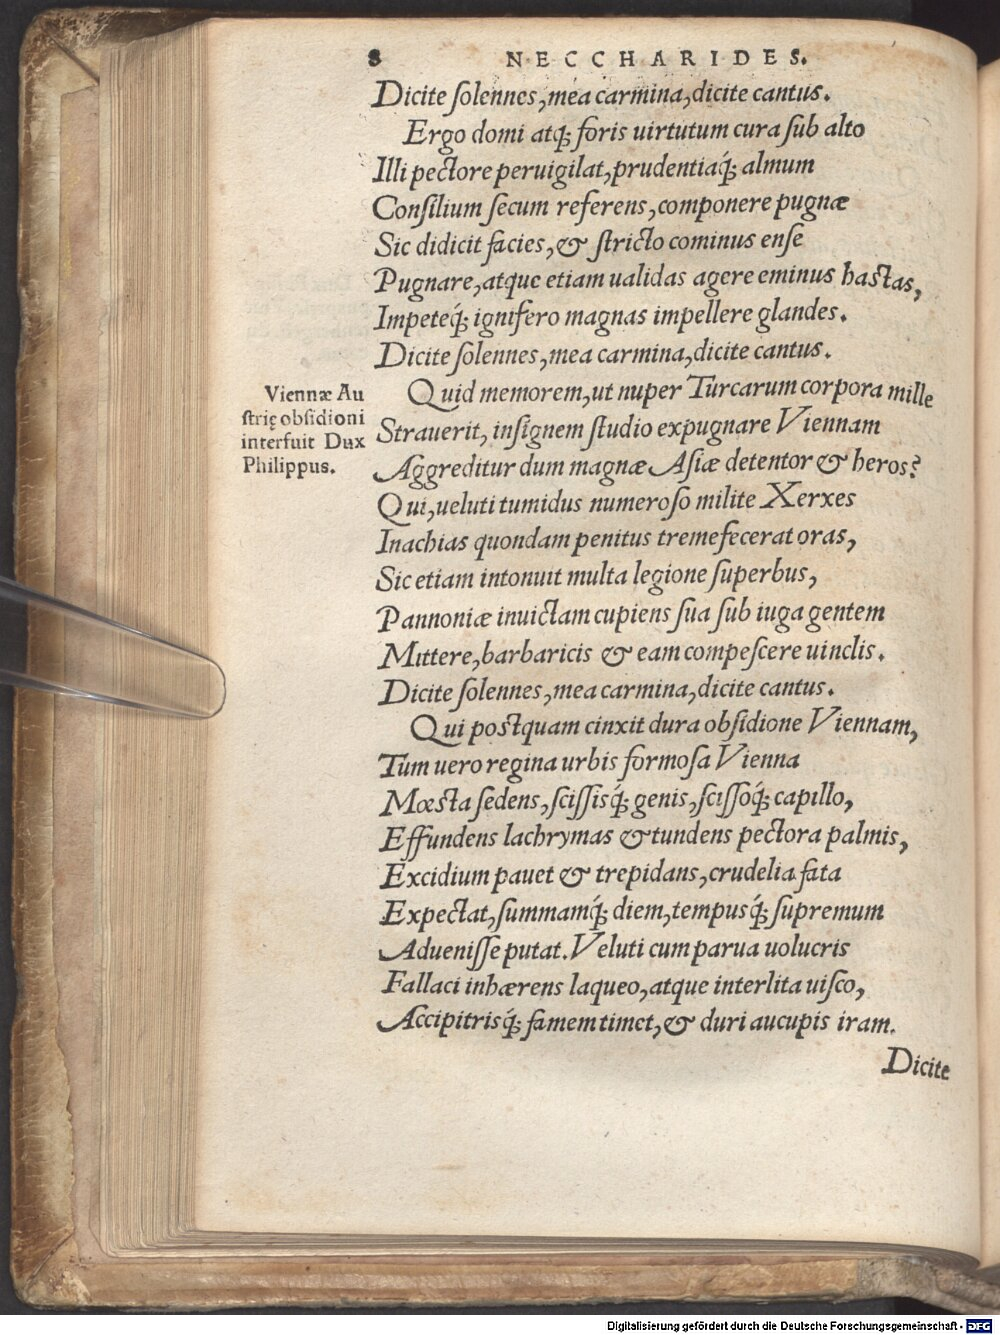 8 NECCHARIDES.
Dicite ſolennes, mea carmina, dicite cantus.
Ergo domi atq; foris uirtutum cura ſub alto
Illi pectore peruigilat, prudentiaq́; almum
Conſilium ſecum referens, componere pugnæ
Sic didicit facies, & ſtricto cominus enſe
Pugnare, atque etiam ualidas agere eminus hastas,
Impeteq́; ignifero magnas impellere glandes.
Dicite ſolennes, mea carmina, dicite cantus.
Viennæ Au
ſtrię obſidioni
interfuit Dux
Philippus.
Quid memorem, ut nuper Turcarum corpora mille
Strauerit, inſignem ſtudio expugnare Viennam
Aggreditur dum magnæ Aſiæ detentor & heros?
Qui, ueluti tumidus numeroſo milite Xerxes
Inachias quondam penitus tremefecerat oras,
Sic etiam intonuit multa legione ſuperbus,
Pannoniæ inuictam cupiens ſua ſub iuga gentem
Mittere, barbaricis & eam compeſcere uinclis.
Dicite ſolennes, mea carmina, dicite cantus.
Qui postquam cinxit dura obſidione Viennam,
Tum uero regina urbis formoſa Vienna
Mœsta ſedens, ſciſſisq́; genis, ſciſſoq́; capillo,
Effundens lachrymas & tundens pectora palmis,
Excidium pauet & trepidans, crudelia fata
Expectat, ſummamq́; diem, tempusq́; ſupremum
Adueniſſe putat. Veluti cum parua uolucris
Fallaci inhærens laqueo, atque interlita uiſco,
Accipitrisq́; famem timet, & duri aucupis iram.
Dicite
Digitalisierung gefördert durch die Deutsche Forschungsgemeinschaft - DFG